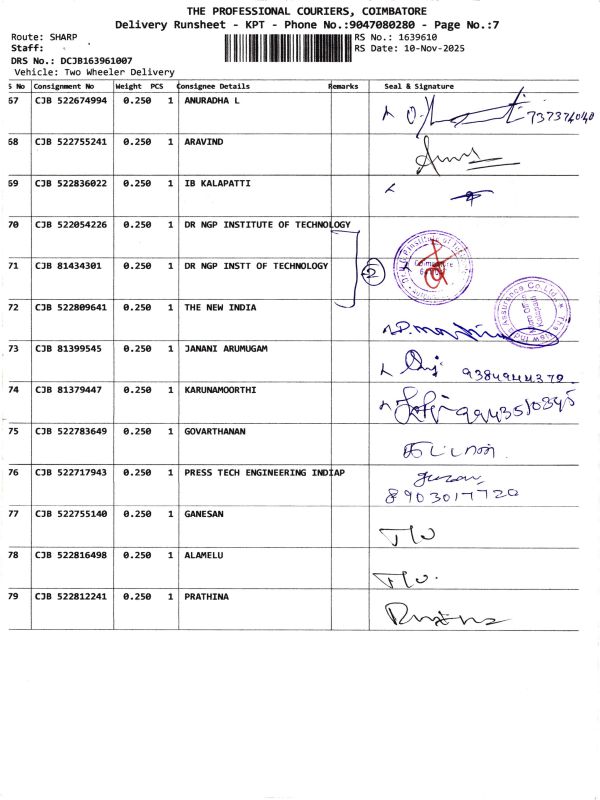 THE PROFESSIONAL COURIERS, COIMBATORE
Delivery Runsheet - KPT - Phone No.:9047080280 - Page No.:7
Route: SHARP
RS No.: 1639610
Staff:
RS Date: 10-Nov-2025
DRS No.: DCJB163961007
Vehicle: Two Wheeler Delivery
S No Consignment No Weight PCS Consignee Details Remarks Seal & Signature
67 CJB 522674994 0.250 1 ANURADHA L 737374040
68 CJB 522755241 0.250 1 ARAVIND
69 CJB 522836022 0.250 1 IB KALAPATTI
70 CJB 522054226 0.250 1 DR NGP INSTITUTE OF TECHNOLOGY
71 CJB 81434301 0.250 1 DR NGP INSTT OF TECHNOLOGY 2
72 CJB 522809641 0.250 1 THE NEW INDIA
73 CJB 81399545 0.250 1 JANANI ARUMUGAM 9384944379
74 CJB 81379447 0.250 1 KARUNAMOORTHI 9943510345
75 CJB 522783649 0.250 1 GOVARTHANAN
76 CJB 522717943 0.250 1 PRESS TECH ENGINEERING INDIAP 8903017720
77 CJB 522755140 0.250 1 GANESAN
78 CJB 522816498 0.250 1 ALAMELU
79 CJB 522812241 0.250 1 PRATHINA